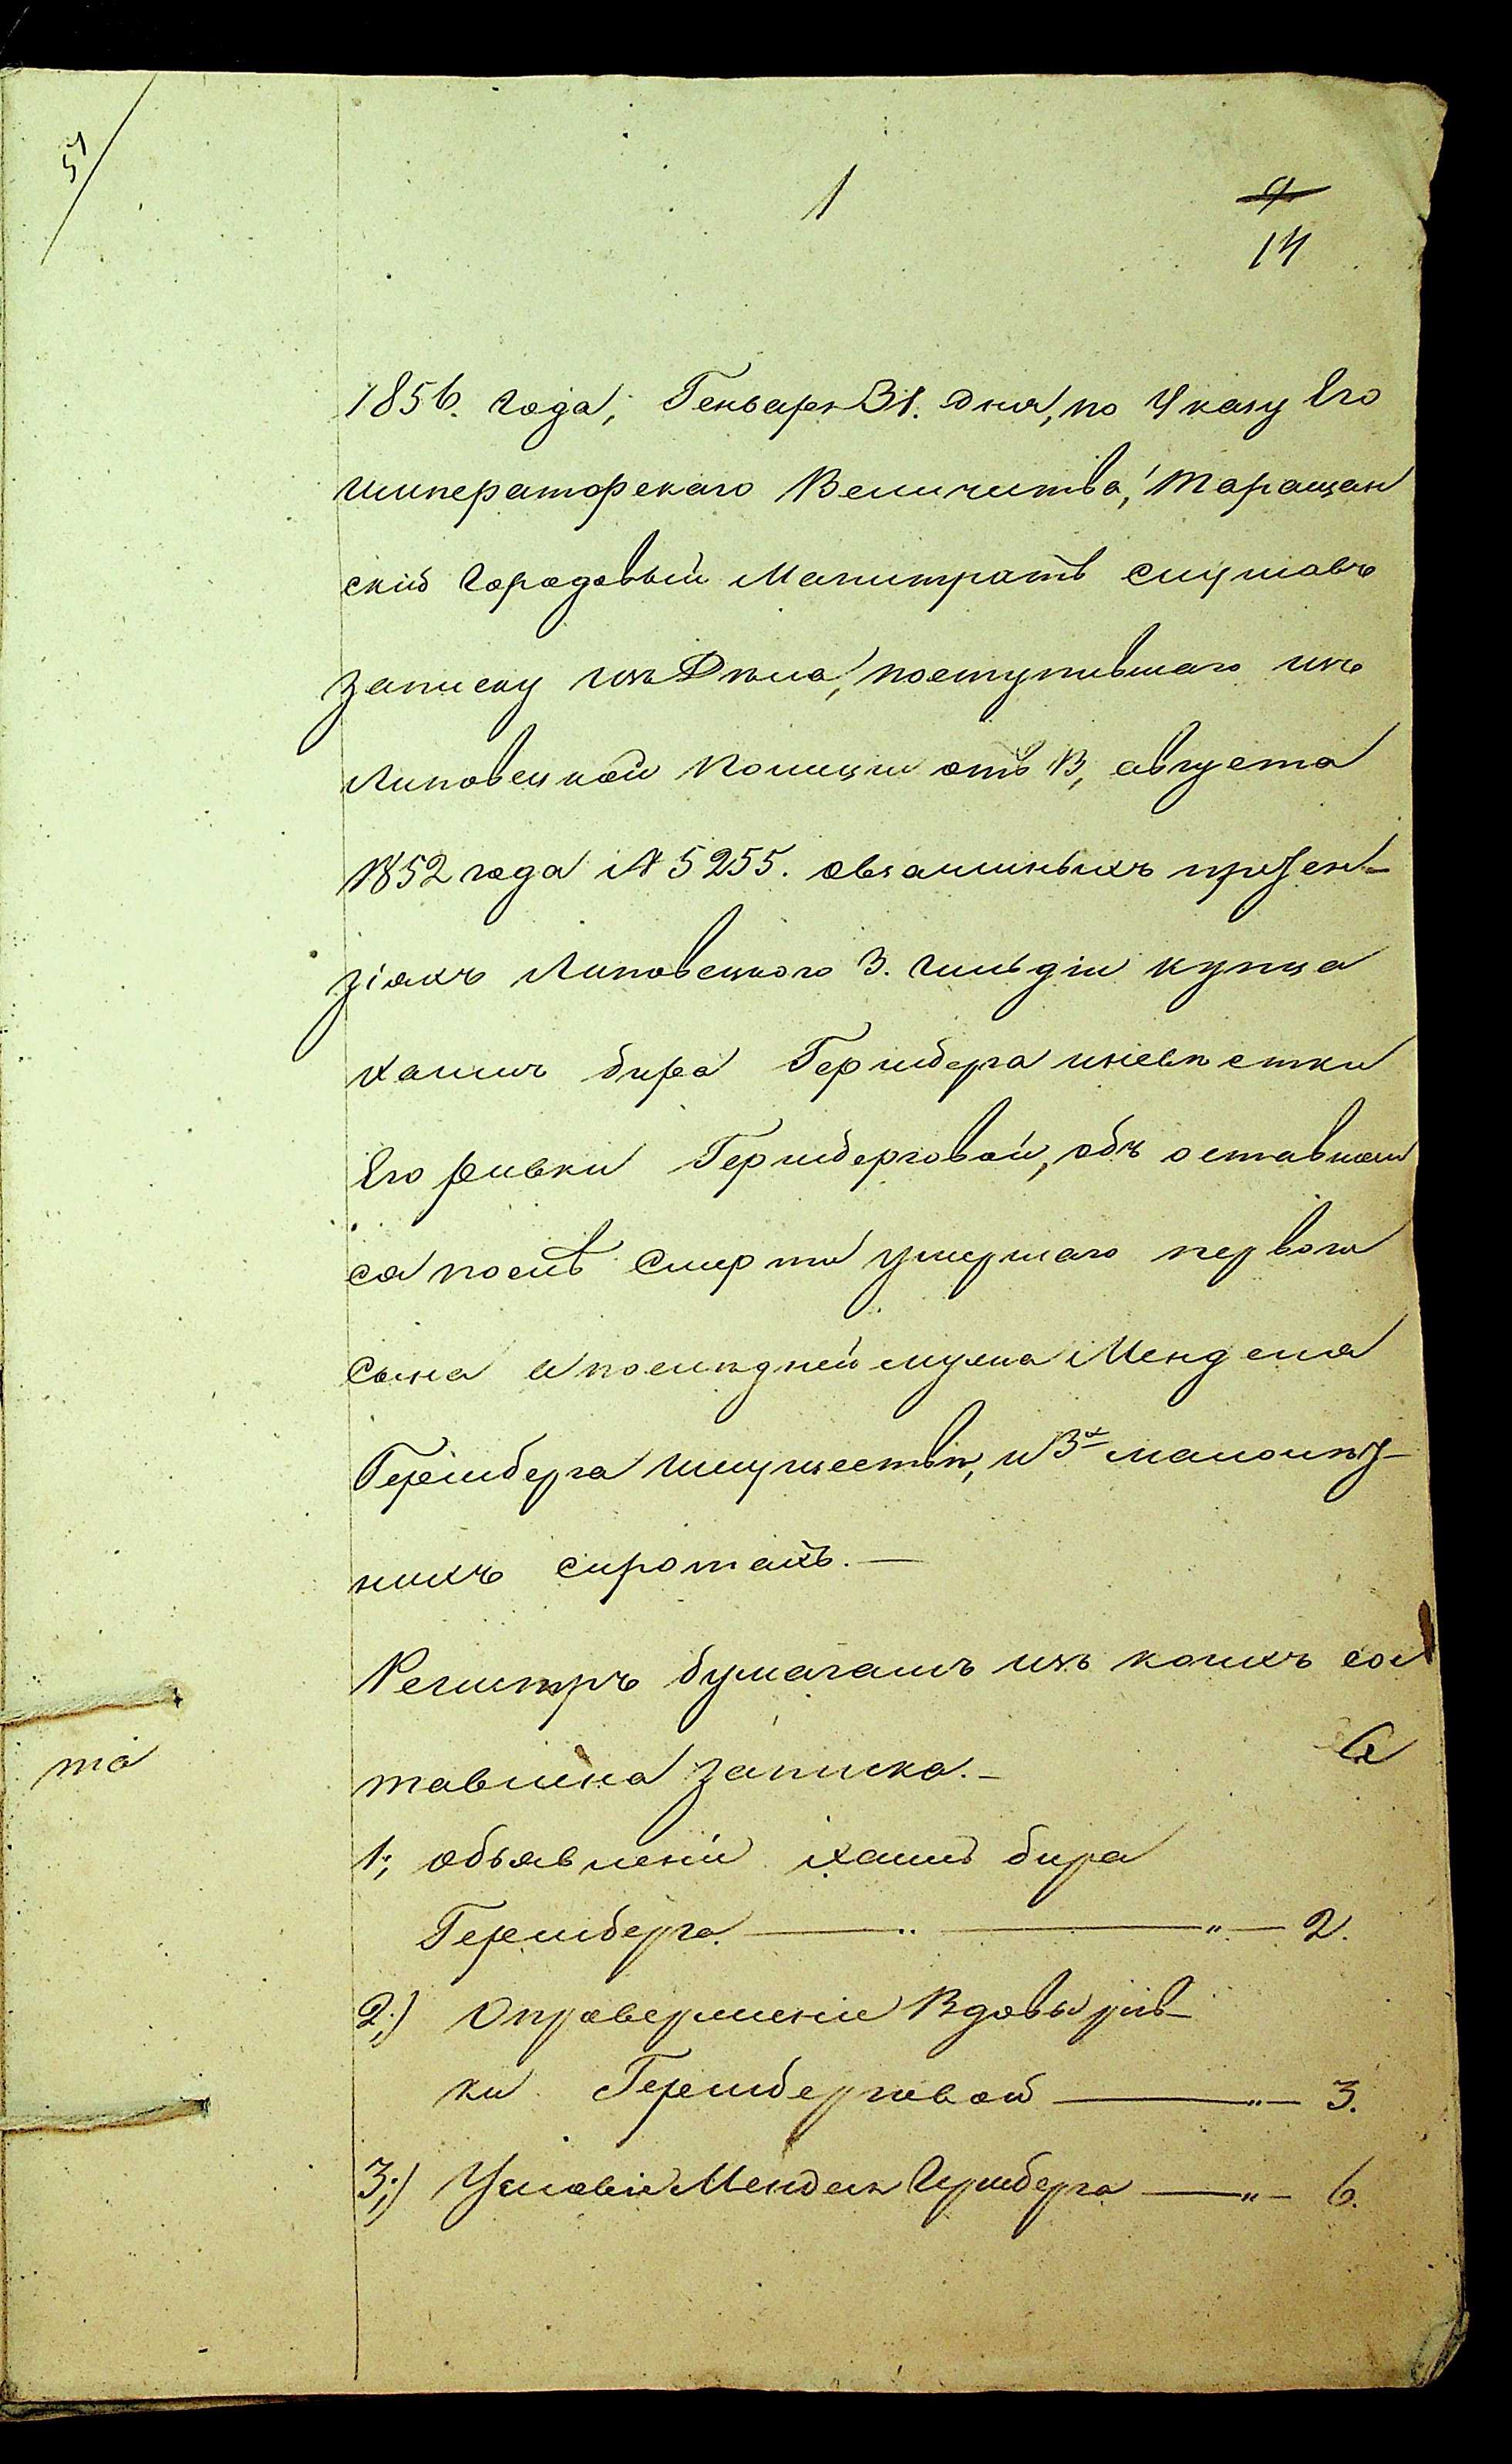 51
1
9
14
1856. года, Генваря 31. дня, по Указу Его
Императорскаго Величиства, Таращан
скій Городовый Магистратъ слушавъ
записку изъ Дѣла, поступившаго изъ
Липовецкой Полиции отъ 13, августа
1852 года № 5255. овзаимныхъ претен-
зіяхъ Липовецкого 3. Гильдіи купца
Хаимъ бира Гершберга иневѣстки
Его Ривки Гершберговой, объ оставшем
ся послѣ Смерти умершаго первого
сына а послѣдней мужа Менделя
Гершберга имуществѣ, и 3х малолѣт-
нихъ сиротахъ. —
Регистръ бумагамъ изъ коихъ сос
тавлена записка. —
та
1; объявленіи Хаимъ бира
Гершберга. — „ — „ — 2.
2;) Опровержение Вдовы рив-
ки Гершберговой — „ — 3.
3;) Условіе Менделя Гершберга — „ — 6.